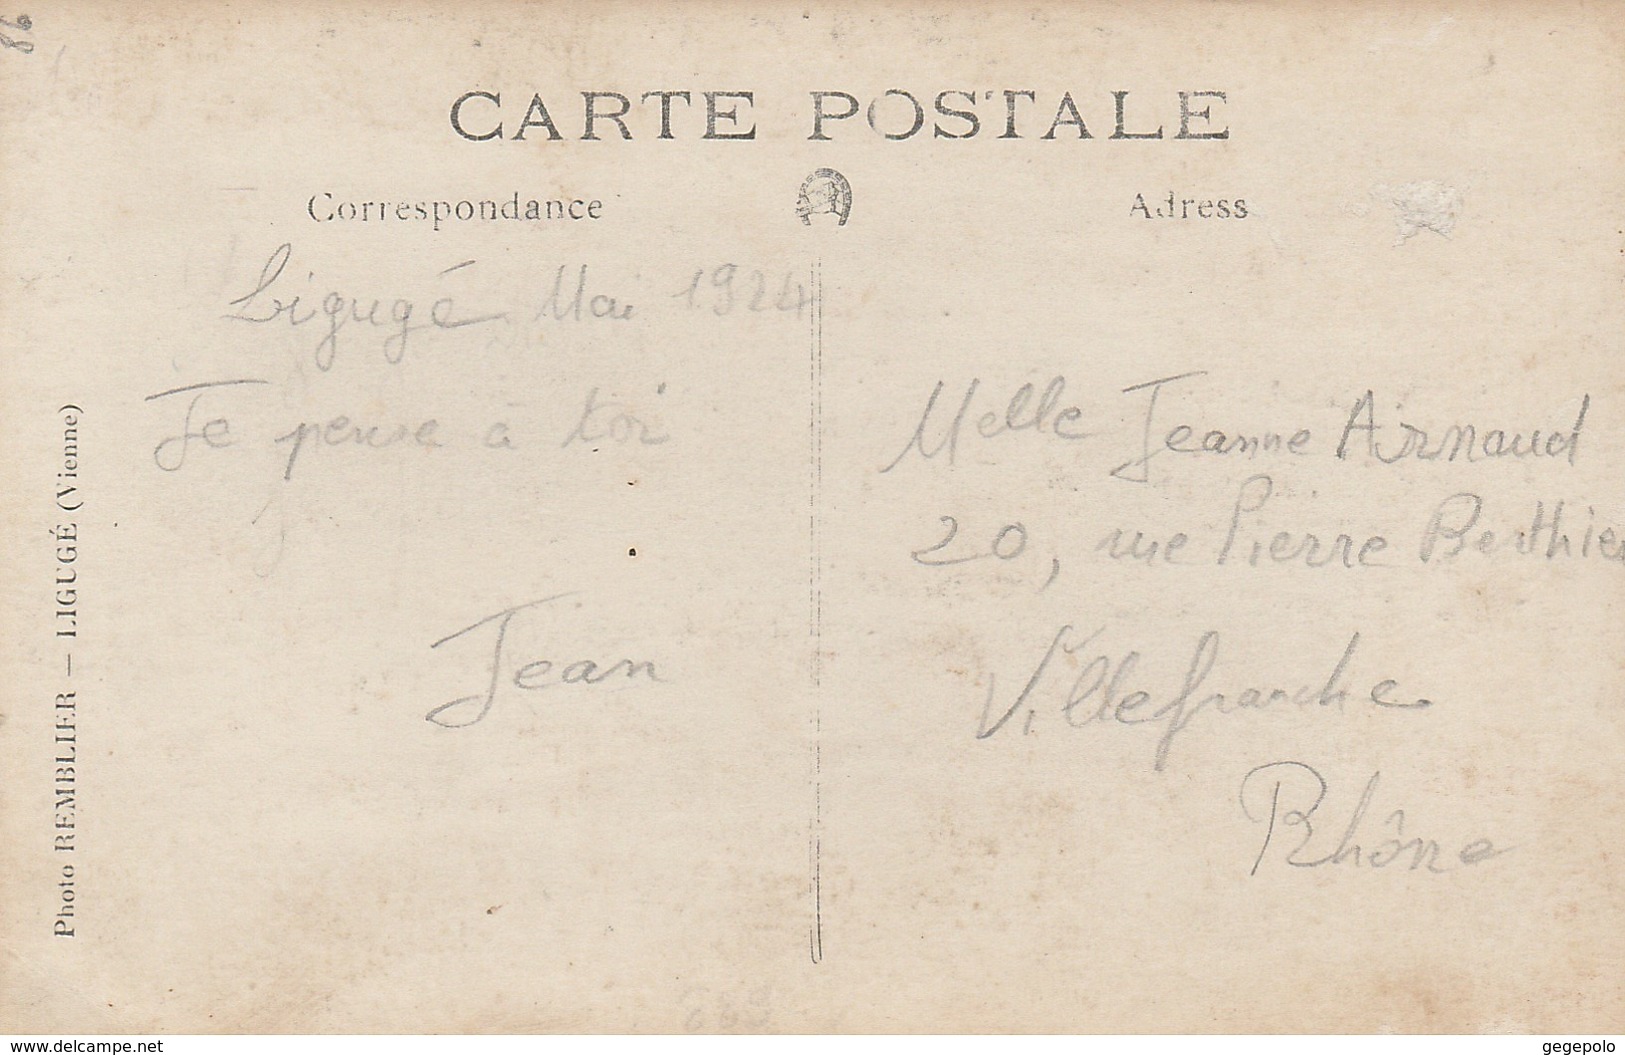 86
CARTE POSTALE
Correspondance
Adress
Ligugé Mai 1924
Je pense à toi
Jean
Melle Jeanne Arnaud
20, rue Pierre Berthier
Villefranche
Rhône
Photo REMBLIER — LIGUGÉ (Vienne)
www.delcampe.net
gegepolo